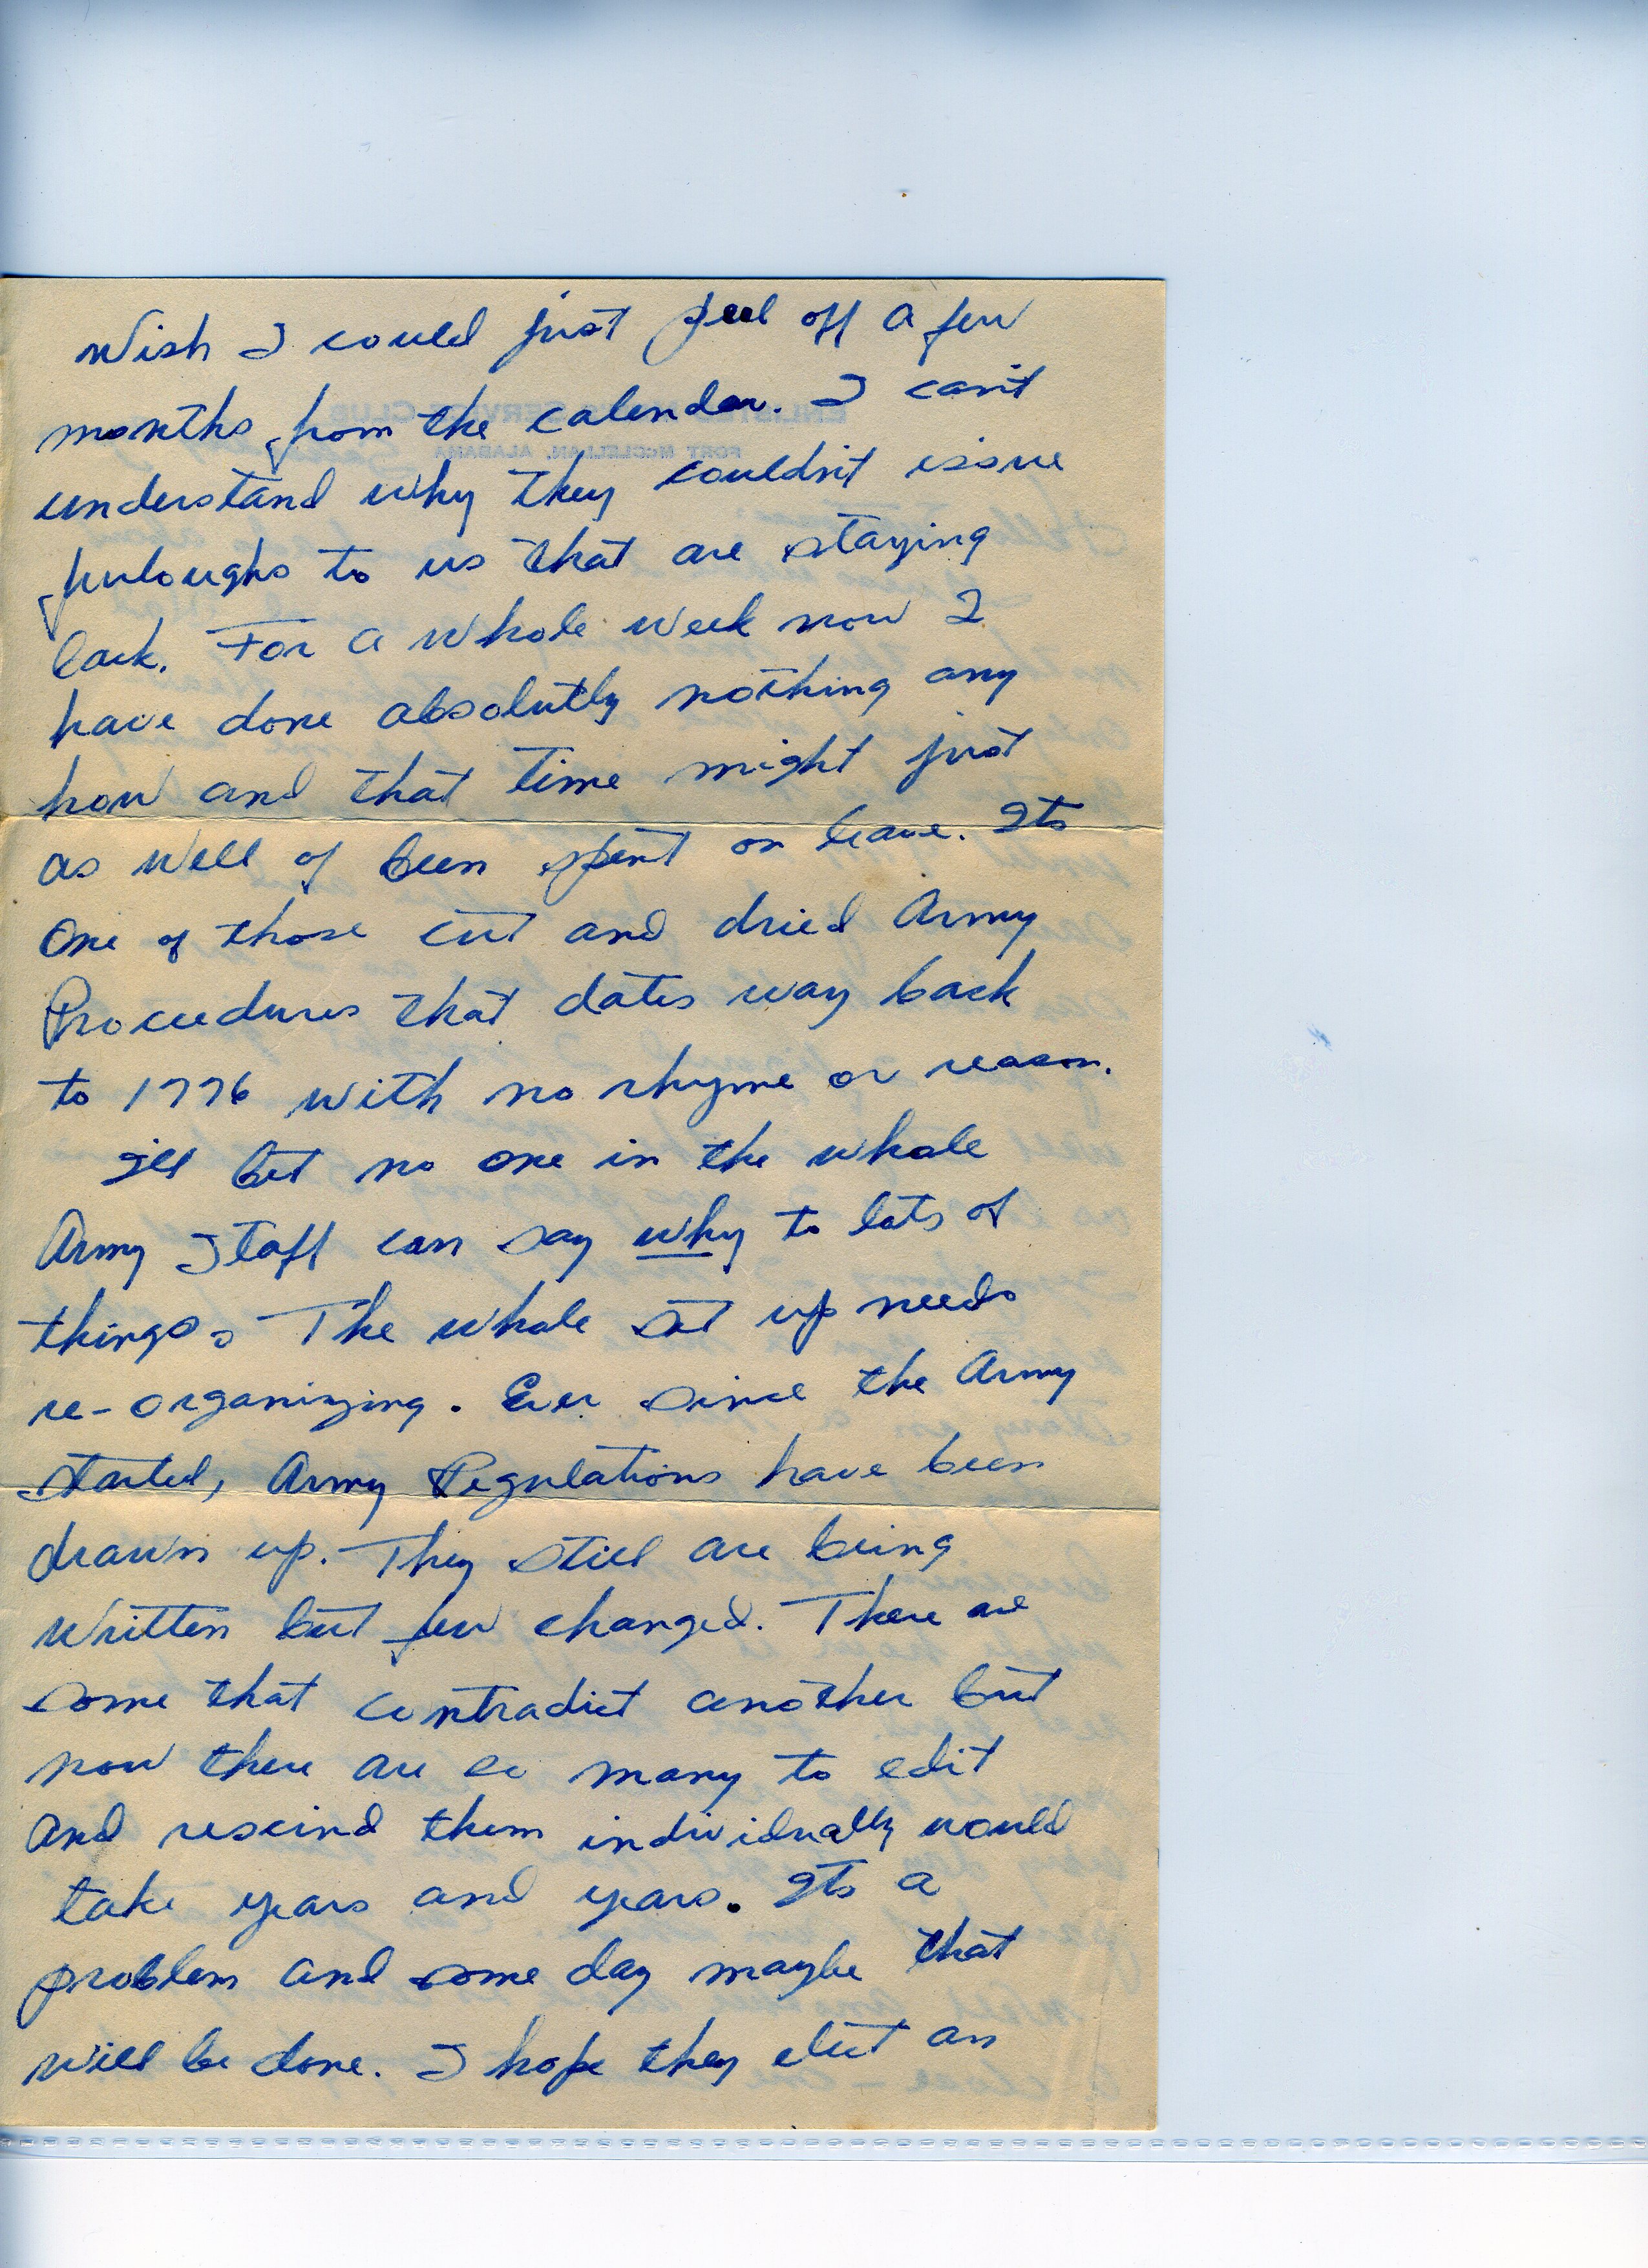 Wish I could just peel off a few
months from the calendar. I can't
understand why they couldn't issue
furloughs to us that are staying
back. For a whole week now I
have done absolutly nothing any
how and that time might just
as well of been spent on leave. Its
one of those cut and dried Army
Procedures that dates way back
to 1776 with no rhyme or reason.
I'll bet no one in the whole
Army Staff can say why to lots of
things. The whole set up needs
re-organizing. Ever since the Army
started, Army Regulations have been
drawn up. They still are being
written but few changed. There are
some that contradict another but
now there are so many to edit
and rescind them individually would
take years and years. Its a
problem and some day maybe that
will be done. I hope they elect an
ENLISTED MEN'S SERVICE CLUB
FORT McCLELLAN, ALABAMA